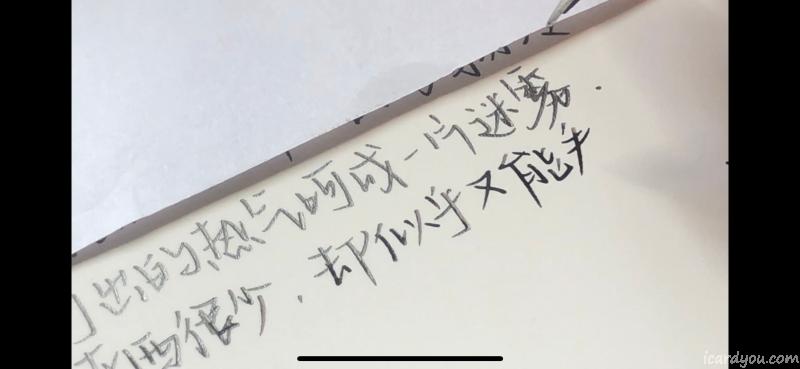 出的热气呵成一片迷雾.
西很少.却似乎又能
icardyou.com